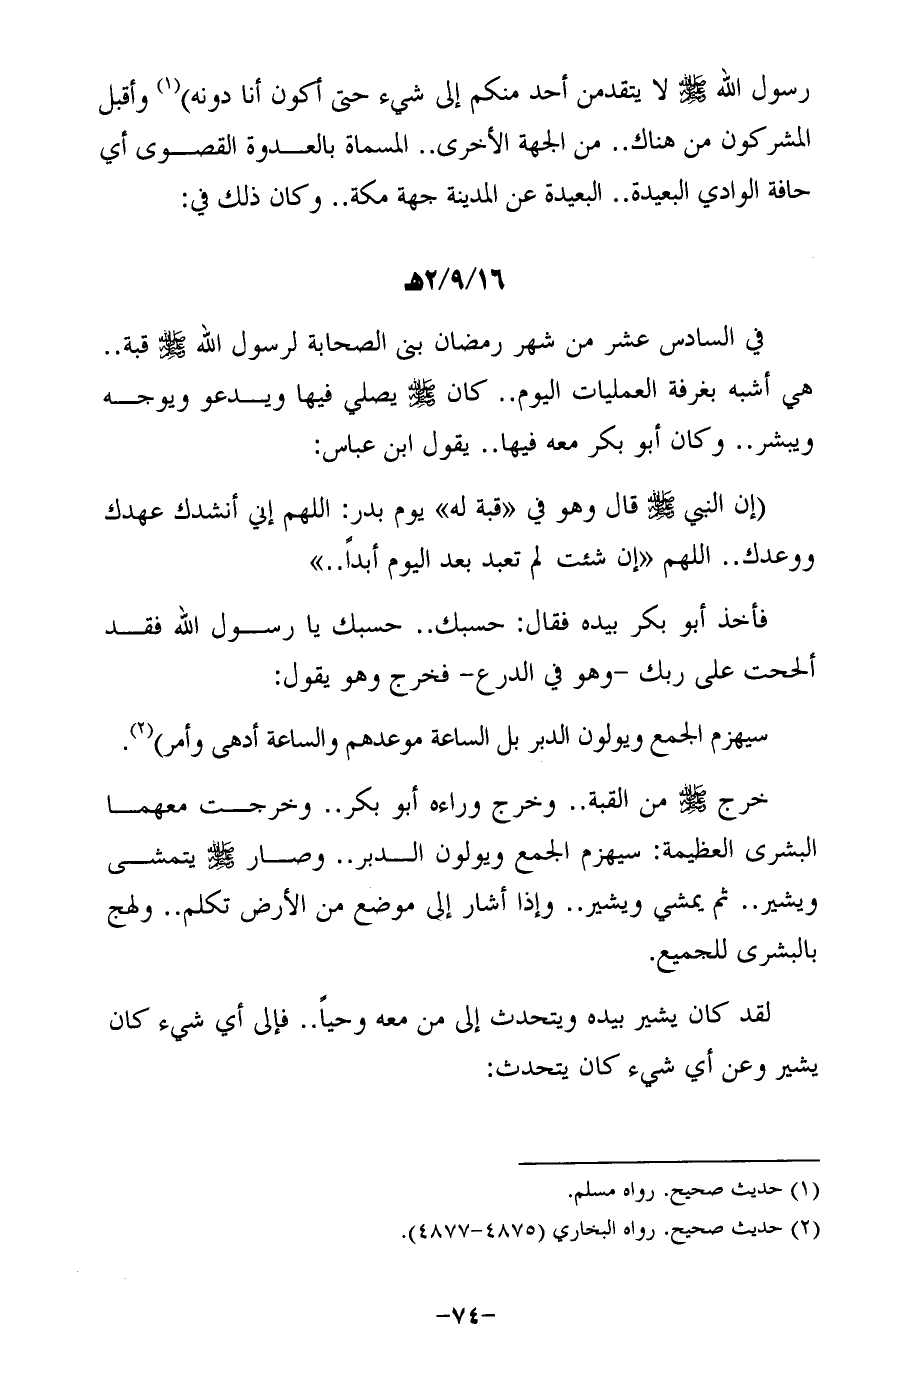 رسول الله ﷺ لا يتقدمن أحد منكم إلى شيء حتى أكون أنا دونه)(١) وأقبل
المشركون من هناك.. من الجهة الأخرى.. المسماة بالعـــدوة القصـــوى أي
حافة الوادي البعيدة.. البعيدة عن المدينة جهة مكة.. وكان ذلك في:
٢/٩/١٦هـ
في السادس عشر من شهر رمضان بنى الصحابة لرسول الله ﷺ قبة..
هي أشبه بغرفة العمليات اليوم.. كان ﷺ يصلي فيها ويـــدعو ويوجـــه
ويبشر.. وكان أبو بكر معه فيها.. يقول ابن عباس:
(إن النبي ﷺ قال وهو في «قبة له» يوم بدر: اللهم إني أنشدك عهدك
ووعدك.. اللهم «إن شئت لم تعبد بعد اليوم أبداً..»
فأخذ أبو بكر بيده فقال: حسبك.. حسبك يا رســـول الله فقـــد
ألححت على ربك –وهو في الدرع– فخرج وهو يقول:
سيهزم الجمع ويولون الدبر بل الساعة موعدهم والساعة أدهى وأمر)(٢).
خرج ﷺ من القبة.. وخرج وراءه أبو بكر.. وخرجـــت معهمـــا
البشرى العظيمة: سيهزم الجمع ويولون الـــدبر.. وصـــار ﷺ يتمشـــى
ويشير.. ثم يمشي ويشير.. وإذا أشار إلى موضع من الأرض تكلم.. ولهج
بالبشرى للجميع.
لقد كان يشير بيده ويتحدث إلى من معه وحياً.. فإلى أي شيء كان
يشير وعن أي شيء كان يتحدث:
(١) حديث صحيح. رواه مسلم.
(٢) حديث صحيح. رواه البخاري (٤٨٧٥–٤٨٧٧).
–٧٤–